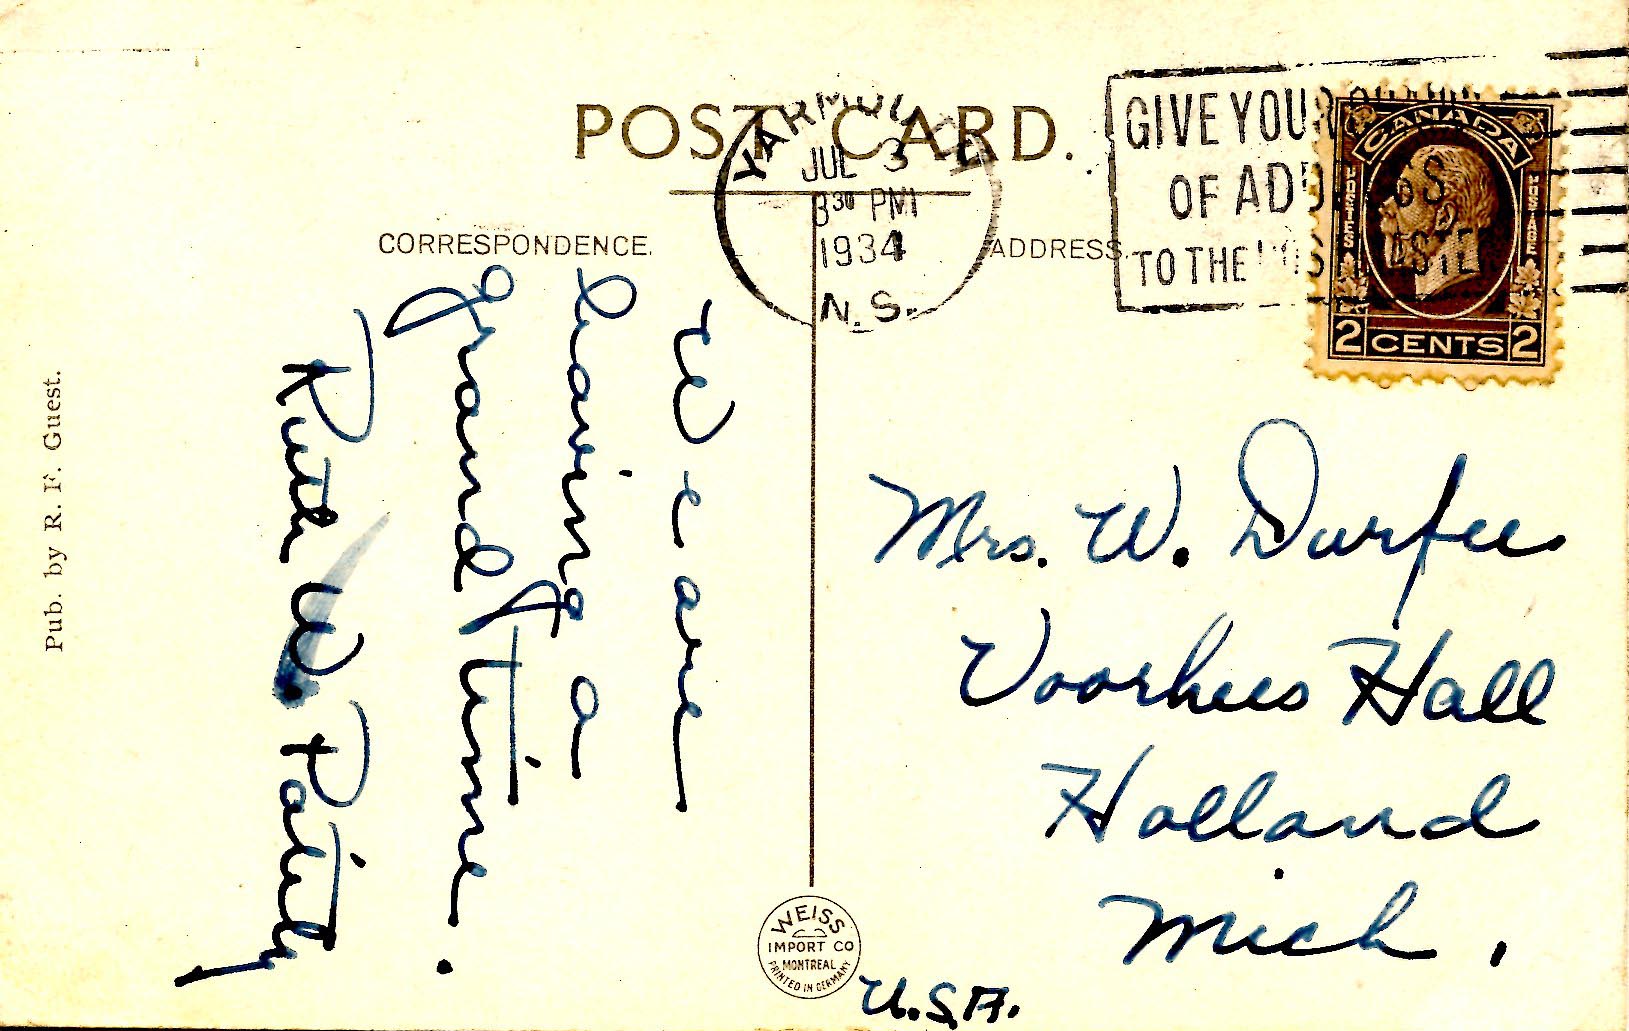 POST CARD.
YARMOUTH
JUL 3
3 30 PM
1934
N.S.
GIVE YOUR
OF ADDRESS
TO THE POSTMASTER
CANADA
POSTES
POSTAGE
2 CENTS 2
CORRESPONDENCE.
ADDRESS.
We are
having a
grand time.
Ruth W.
Mrs. W. Durfee
Voorhees Hall
Holland
Mich.
U.S.A.
Pub. by R. F. Guest.
WEISS
IMPORT CO
MONTREAL
PRINTED IN GERMANY